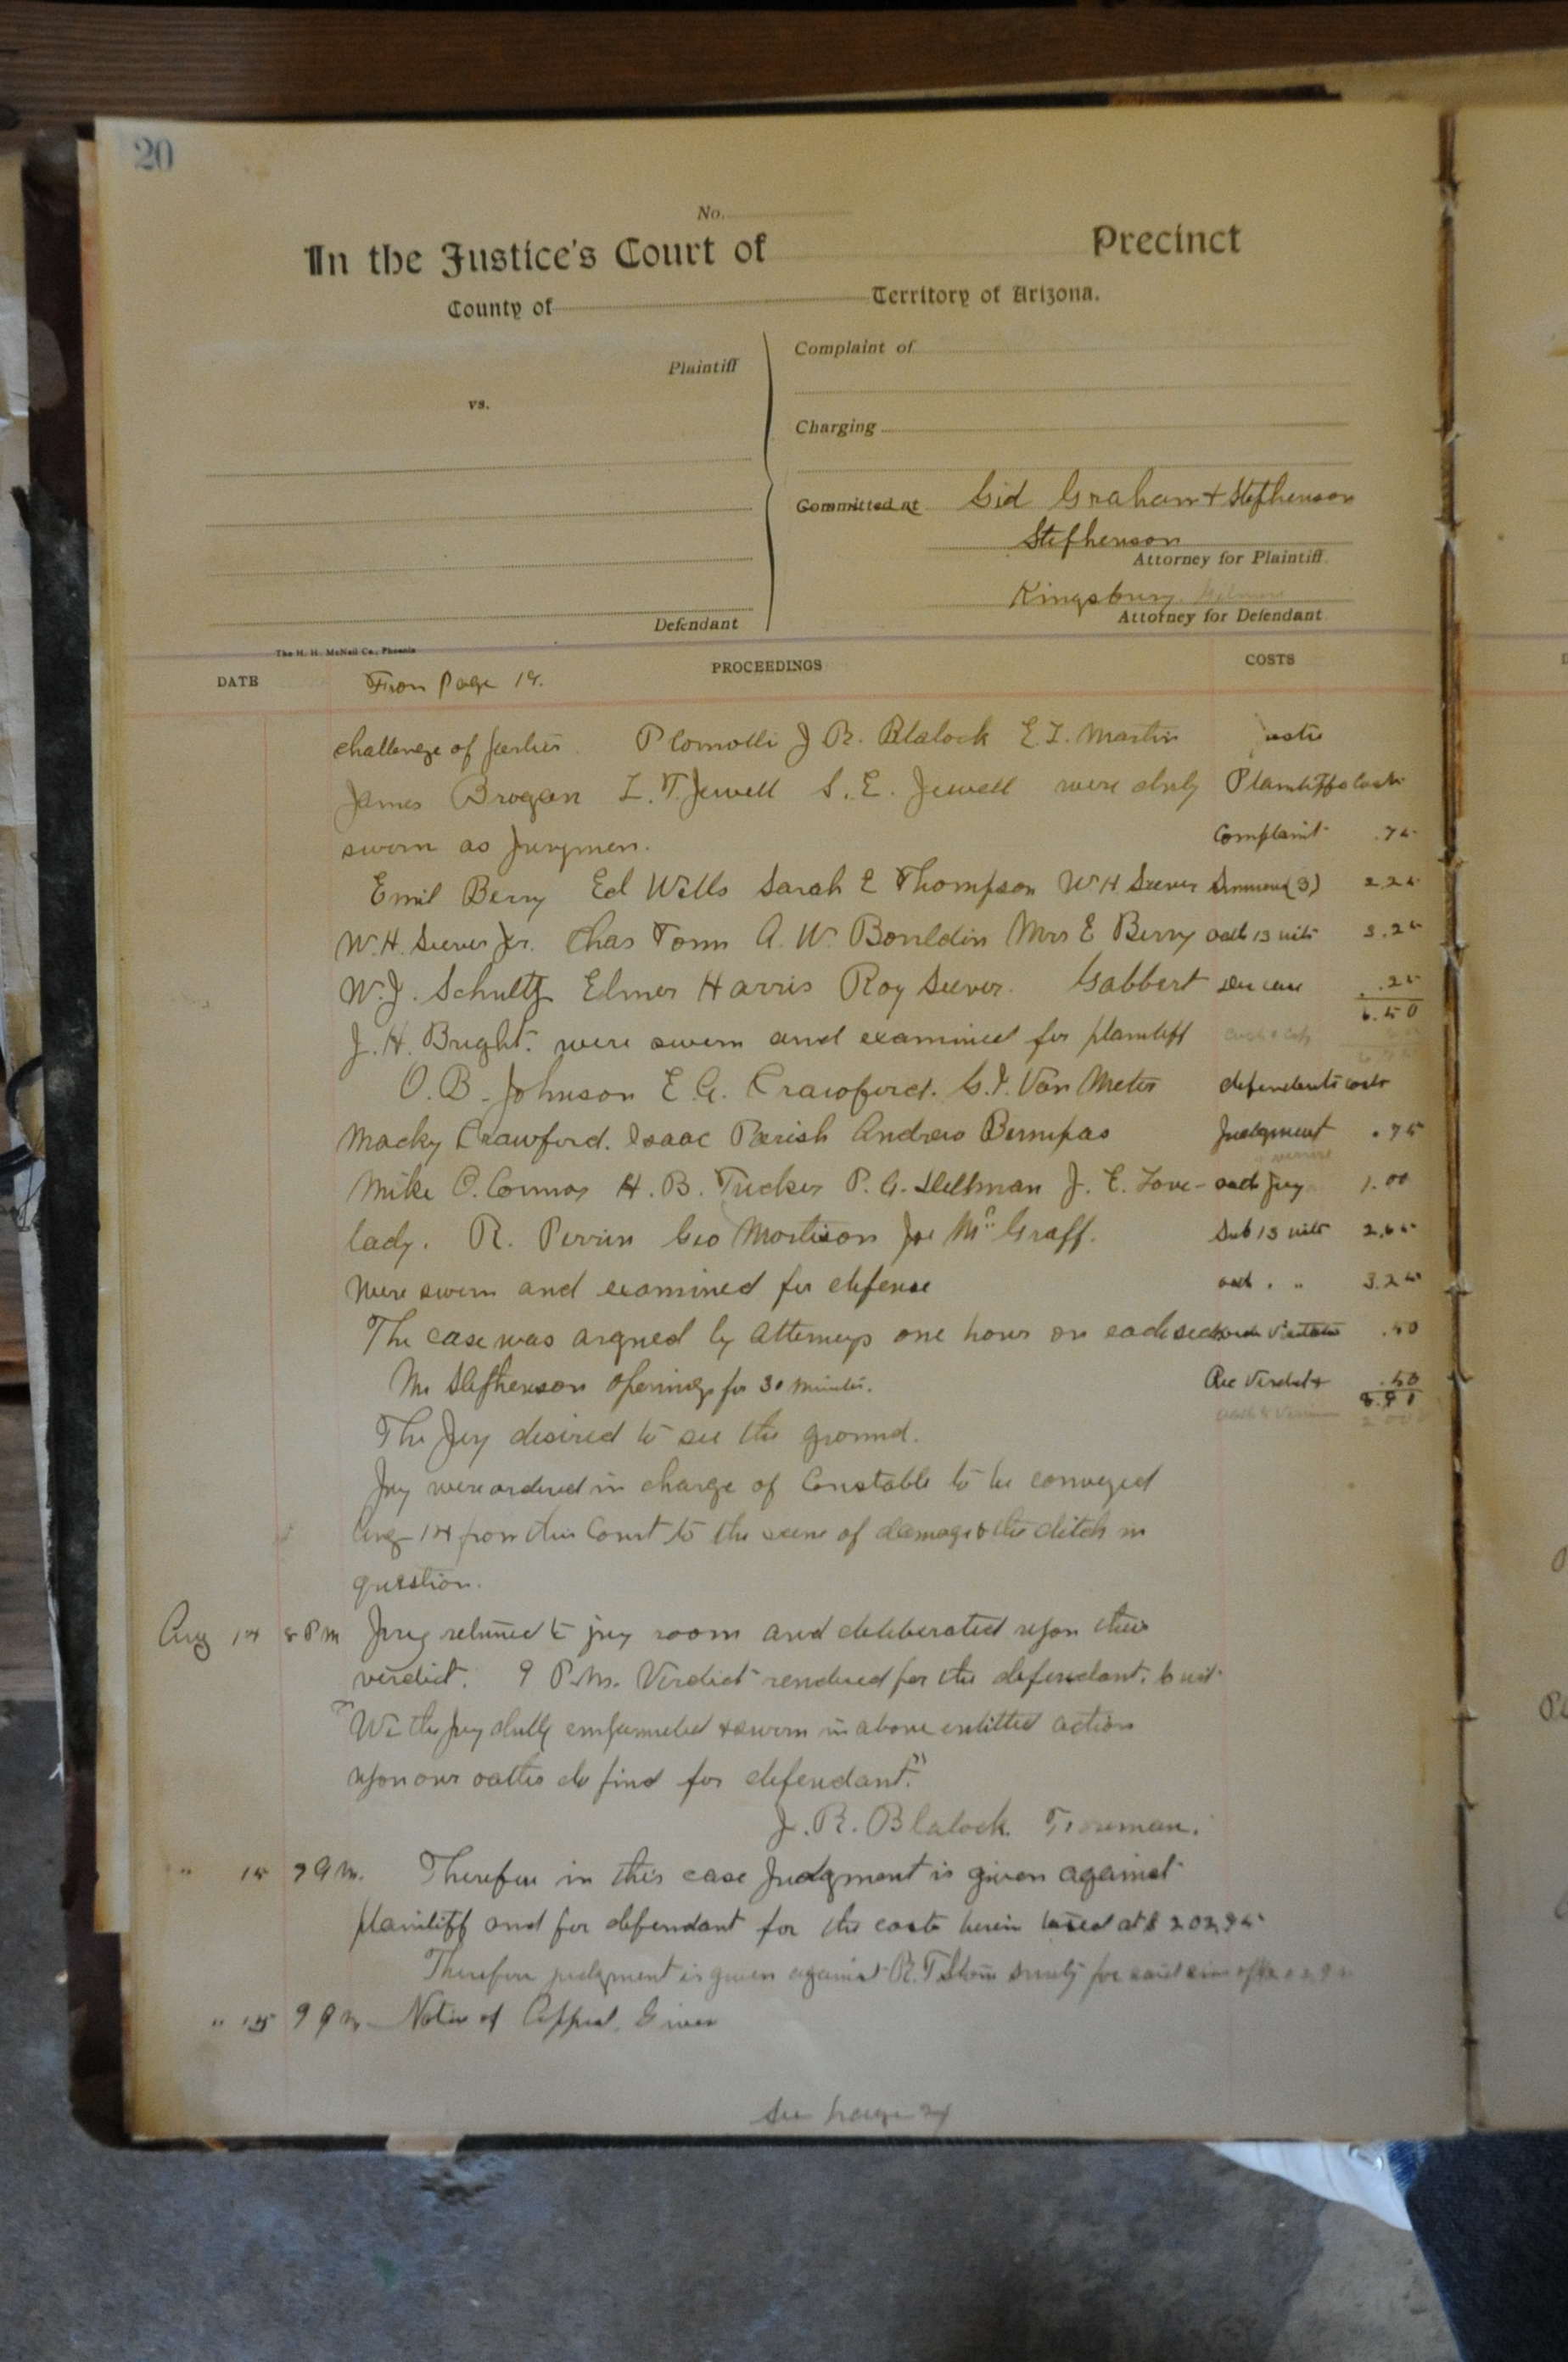 20
No.
In the Justice's Court of Precinct
County of Territory of Arizona.
Plaintiff
vs.
Defendant
Complaint of
Charging
Committed at Sid Graham + Stephenson
Stephenson
Attorney for Plaintiff
Kingsbury
Attorney for Defendant
The H. H. McNeil Co., Phoenix
DATE PROCEEDINGS COSTS
From Page 19.
challenge of parties. P Comolli J R. Blalock E I. Martin
James Brogan L. T. Jewell S. E. Jewell were duly Plaintiffs costs
sworn as jurymen. Complaint .75
Emil Berry Ed Wells Sarah E Thompson W H Seever Summons (3) 2.25
W. H. Seever Jr. Chas Tonn A. W. Bouldin Mrs E Berry oath 13 wits 3.25
W. J. Schultz Elmer Harris Roy Seever. Gabbert .25
6.50
J. H. Bright. were sworn and examined for plaintiff
O. B. Johnson E. G. Crawford. G. I. Van Meter defendants costs
Macky Crawford. Isaac Parish Andrew Bumpas Judgment .75
Mike O. Connor H. B. Tucker P. G. Hellman J. E. Love- oath jury 1.00
lady. R. Perrin Geo Mortison Joe McGraff. Sub 13 wits 2.65
were sworn and examined for defense oath " " 3.25
The case was argued by attorneys one hour on each .50
Mr Stephenson opening for 30 minutes. Rec Verdict .50
The Jury desired to see the ground.
Jury were ordered in charge of Constable to be conveyed
Aug 14 from this Court to the scene of damage & the ditch in
question.
Aug 14 8 P m Jury returned to jury room and deliberated upon their
verdict. 9 P.m. Verdict rendered for the defendant. to wit
"We the jury dully empanneled & sworn in above entitled action
upon our oaths do find for defendant."
J. R. Blalock. Foreman.
" 15 9 a m. Therefore in this case Judgment is given against
plaintiff and for defendant for the costs herein taxed at $ 202.95
Therefore judgment is given against R. T. Stone surety for said sum of
" 15 9 a m Notice of Appeal Given
See page 24